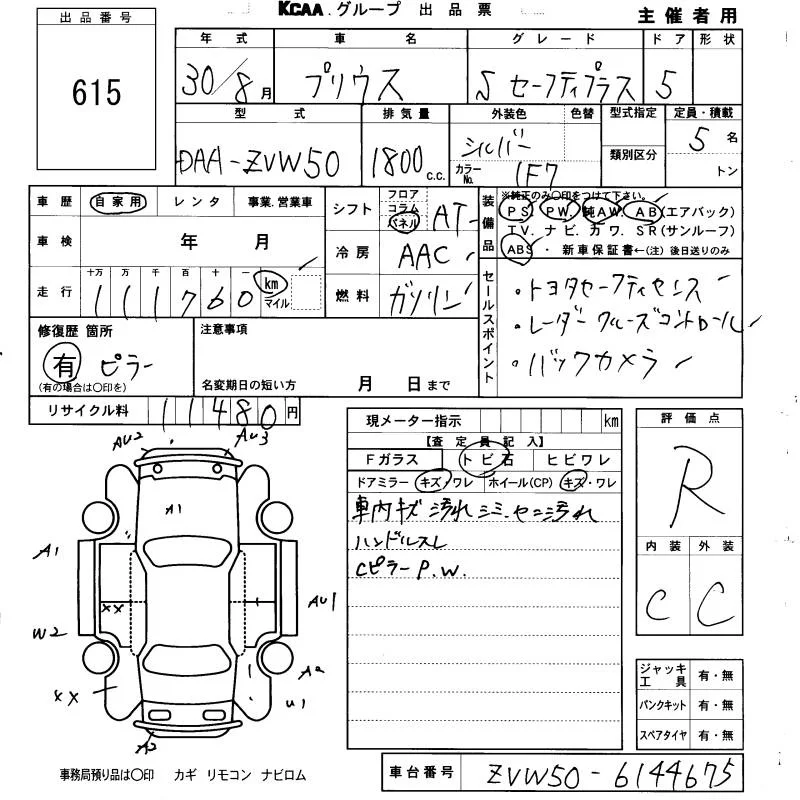 KCAA.グループ 出品票
主催者用
出品番号
615
年式 車名 グレード ドア 形状
30/8月 プリウス S セーフティプラス 5
型式 排気量 外装色 色替 型式指定 定員・積載
DAA-ZVW50 1800 C.C. シルバー 類別区分 5名
カラーNo. 1F7 トン
車歴 自家用 レンタ 事業.営業車
シフト フロア コラム パネル AT
装備品 ※純正のみ○印をつけて下さい。
PS PW. 純AW. AB(エアバック)
TV. ナビ. カワ. SR(サンルーフ)
ABS ・ 新車保証書←(注) 後日送りのみ
車検 年 月
冷房 AAC
走行 十万 万 千 百 十 一
111760 km マイル
燃料 ガソリン
セールスポイント
・トヨタセーフティセンス
・レーダークルーズコントロール
・バックカメラ
修復歴 箇所
有 ピラー
(有の場合は○印を)
注意事項
名変期日の短い方 月 日まで
リサイクル料 11480円
現メーター指示 km
【査定員記入】
Fガラス トビ石 ヒビワレ
ドアミラー キズ/ワレ ホイール(CP) キズ・ワレ
車内キズ 汚れ シミ.セニ汚れ
ハンドルスレ
Cピラー P.W.
評価点
R
内装 外装
C C
AU2 AU3
A1
A1
XX
AU1
W2
XX
A2
U1
A2
ジャッキ工具 有・無
パンクキット 有・無
スペアタイヤ 有・無
事務局預り品は○印 カギ リモコン ナビロム
車台番号 ZVW50-6144675